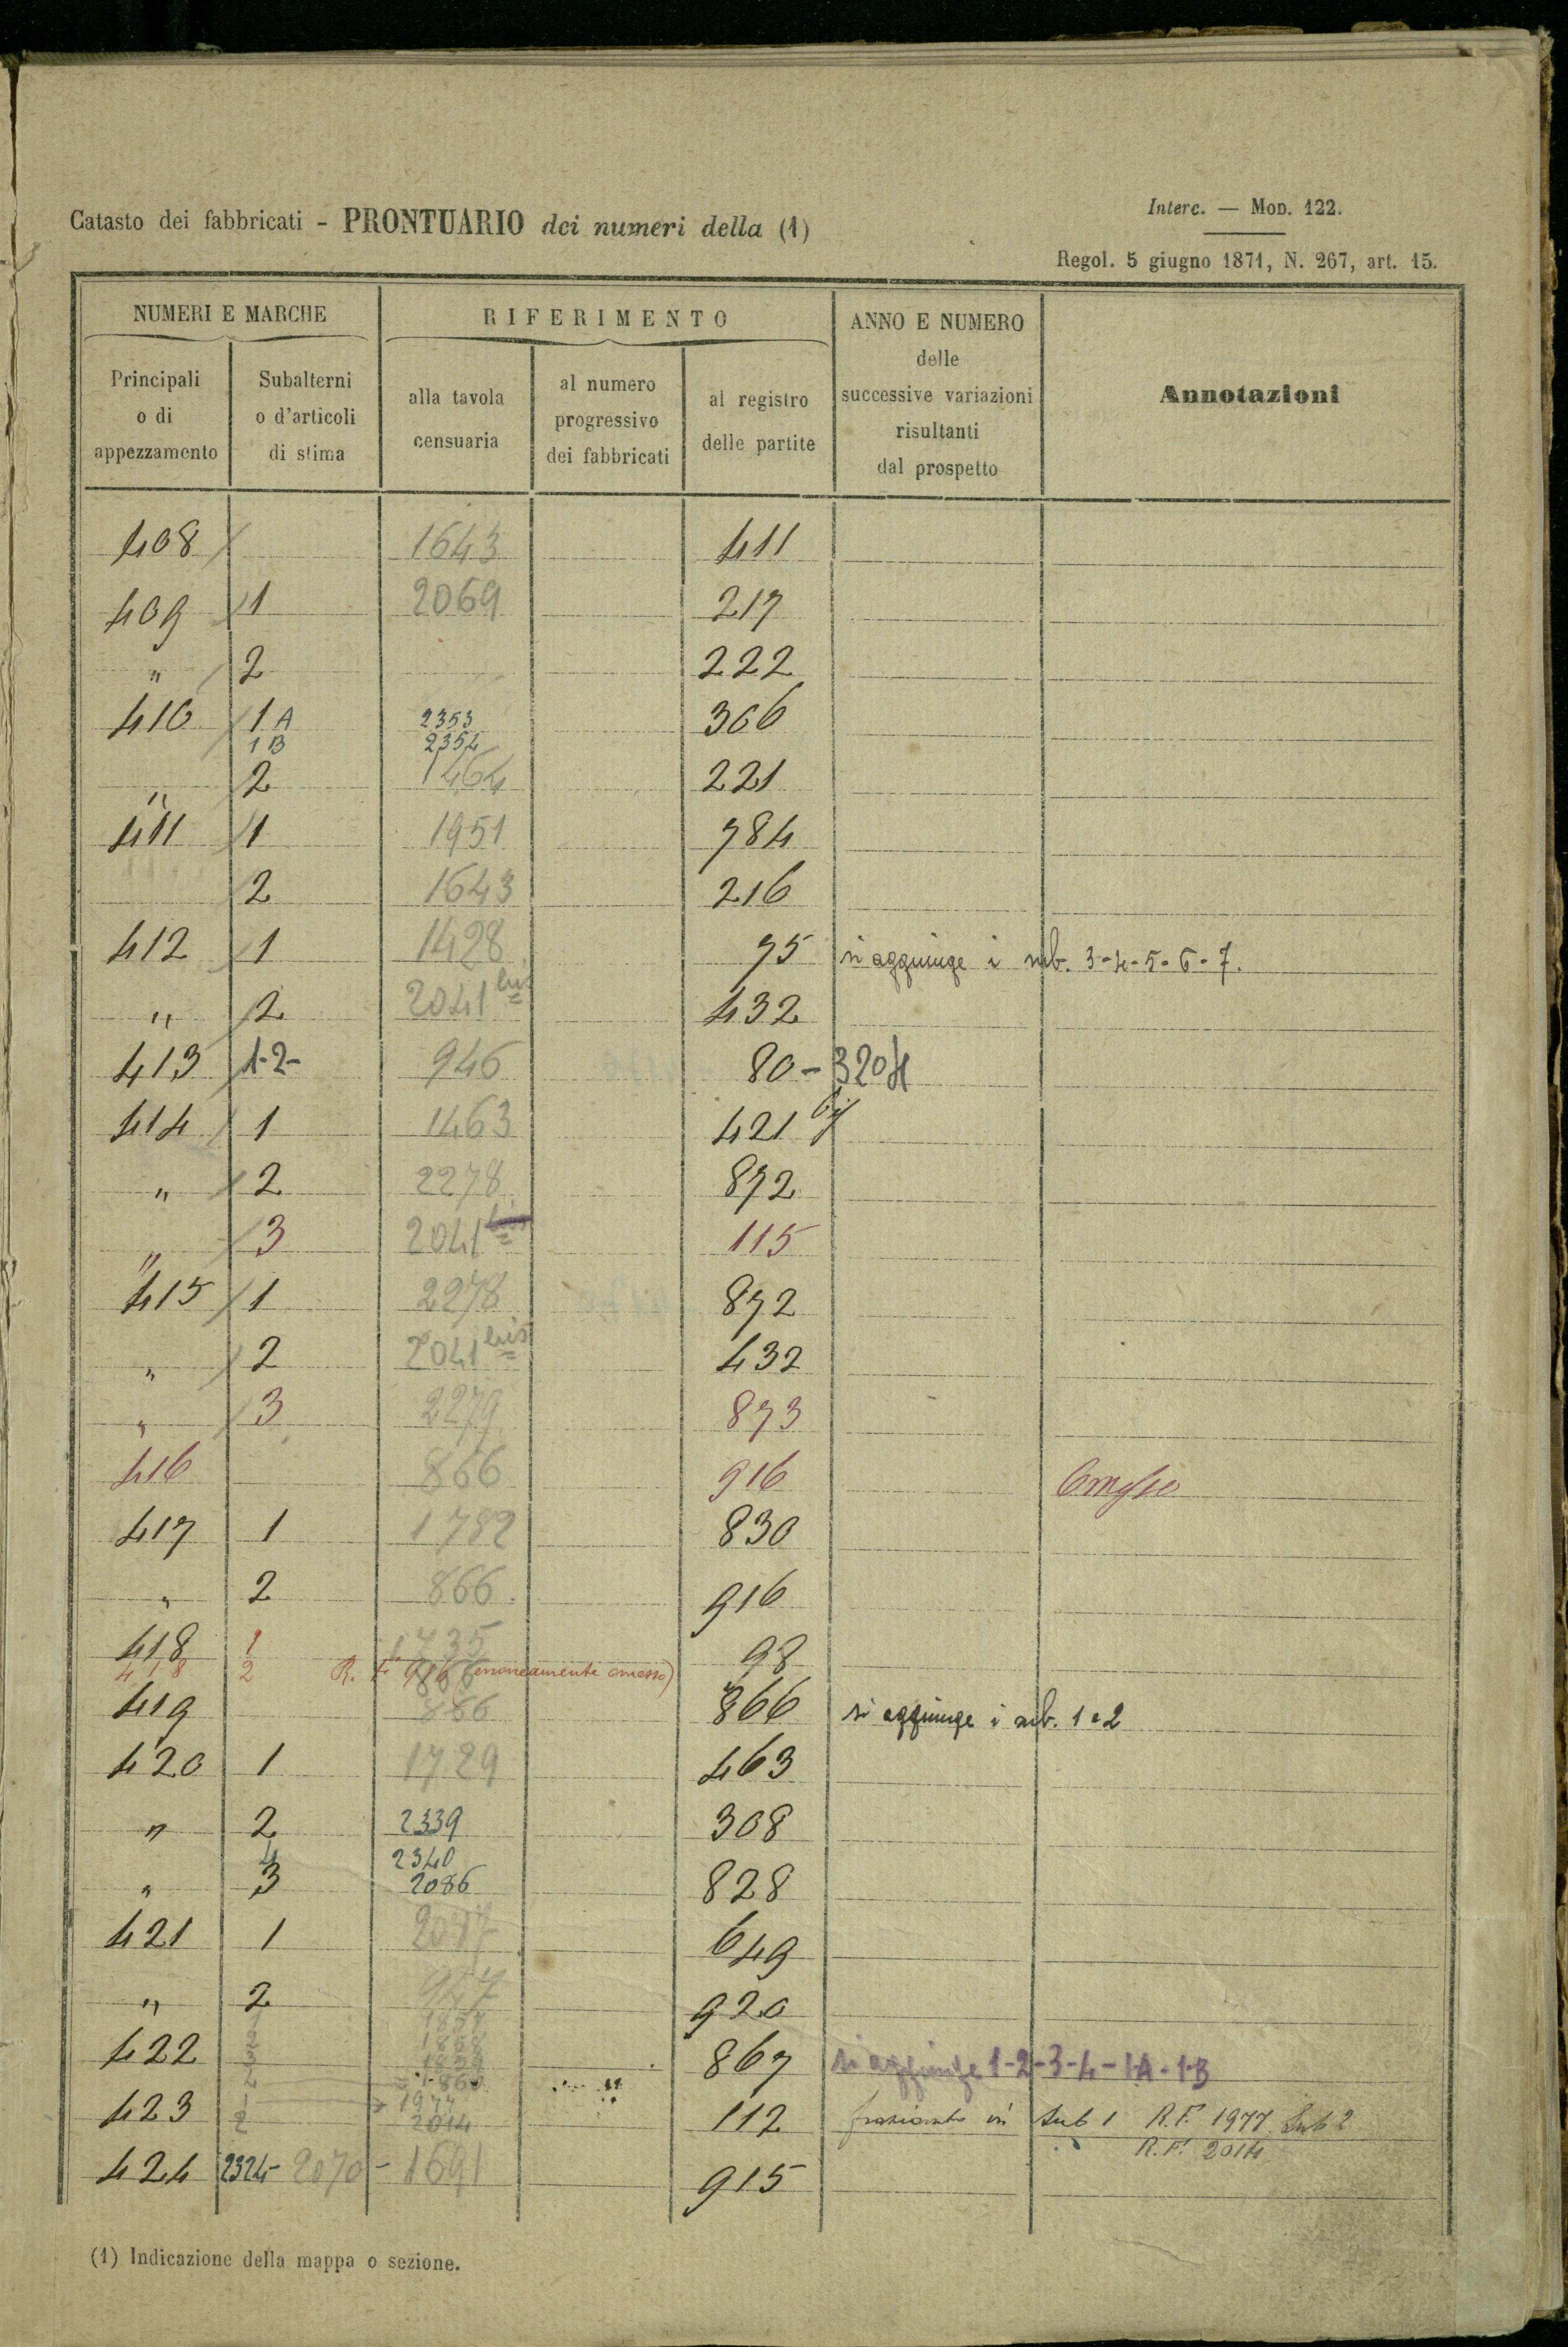 Interc. — Mod. 122.
Catasto dei fabbricati - PRONTUARIO dei numeri della (1)
Regol. 5 giugno 1871, N. 267, art. 15.
NUMERI E MARCHE RIFERIMENTO ANNO E NUMERO delle successive variazioni risultanti dal prospetto Annotazioni
Principali o di appezzamento Subalterni o d'articoli di stima alla tavola censuaria al numero progressivo dei fabbricati al registro delle partite
408 1643 411
409 1 2069 217
" 2 222
410 1 A 2353 306
1 B 2354
" 2 1464 221
411 1 1951 784
2 1643 216
412 1 1428 75 si aggiunge i sub. 3-4-5-6-7.
" 2 2041 bis 432
413 1-2- 946 80 - 3204
414 1 1463 421 bis
" 2 2278 872
" 3 2041 bis 115
415 1 2278 872
" 2 2041 bis 432
" 3 2279 873
416 866 916 Omesso
417 1 1782 830
" 2 866 916
418 1 1735 98
418 2 R. F. 916 (erroneamente omesso)
419 886 866 si aggiunge i sub. 1 e 2
420 1 1729 463
" 2 2339 308
4 2340
" 3 2086 828
421 1 2047 649
" 2 947 920
422 867 si aggiunge 1-2-3-4-1A-1B
1860
1977
423 2 2014 112 frazionato in Sub 1 R.F. 1977 Sub 2
R.F. 2014
424 2324- 2070 - 1691 915
(1) Indicazione della mappa o sezione.